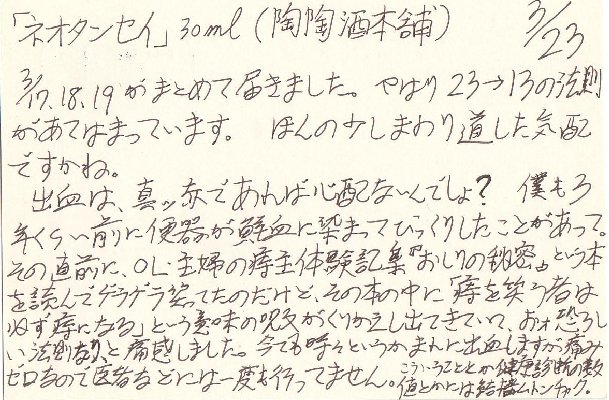 「ネオタンセイ」30ml(陶陶酒本舗) 3/23
3/17.18.19がまとめて届きました。やはり23→13の法則
があてはまっています。 ほんの少しまわり道した気配
ですかね。
出血は、真ッ赤であれば心配ないんでしょ? 僕も3
年くらい前に便器が鮮血に染まってびっくりしたことがあって。
その直前に、OL・主婦の痔主体験記集『おしりの秘密』という本
を読んでゲラゲラ笑ってたのだけど、その本の中に「痔を笑う者は
必ず痔になる」という意味の呪文がくりかえし出てきていて、おォ恐ろし
い法則なり、と痛感しました。今でも時々というかまれに出血しますが痛み
ゼロなので医者などには一度も行ってません。こういうこととか健康診断の数
値とかには結構ムトンチャク。